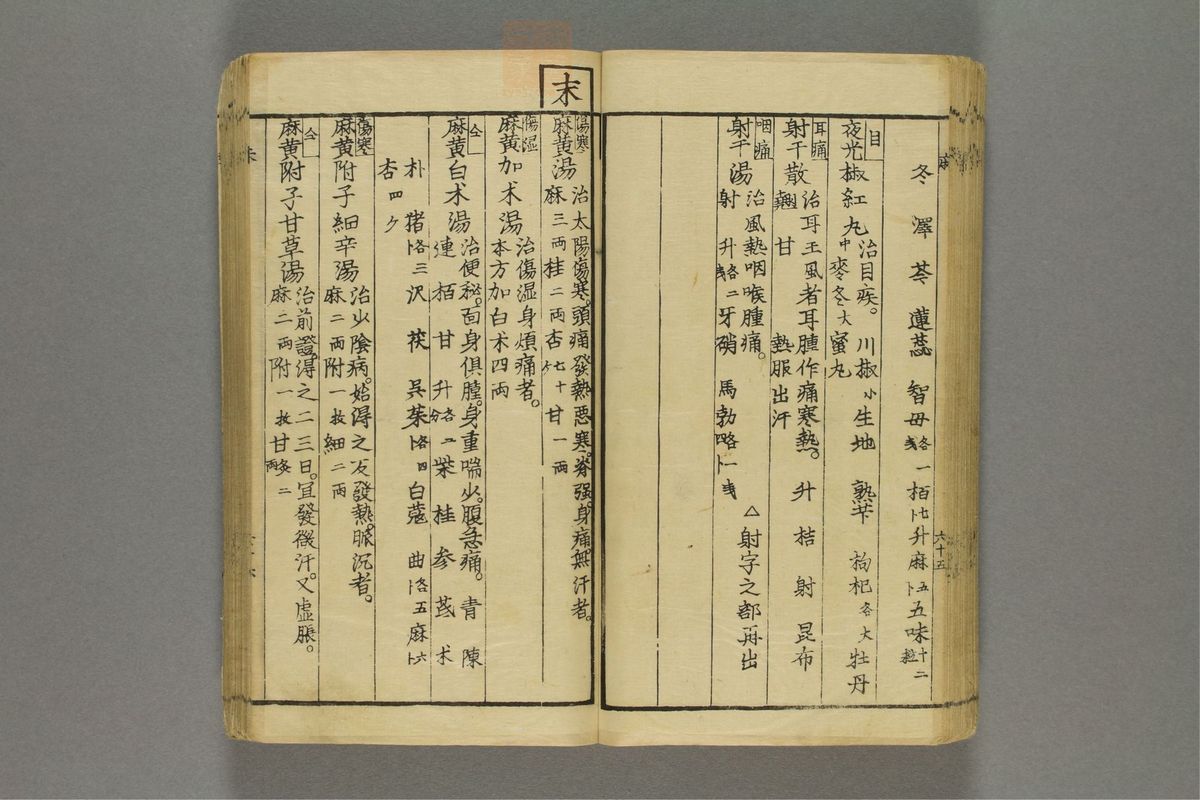 冬 澤 苓 蓮蕊 智母各一 栢七卜 升麻五卜 五味十二粒
目
夜光椒紅丸 治目疾。 川椒小 生地 熟芐 枸杞各大 牡丹
中麥冬大 蜜丸
耳痛
射干散 治耳王風者耳腫作痛寒熱。 升 桔 射 昆布
翹 甘 熱服出汗
咽痛
射干湯 治風熱咽喉腫痛。
射 升各二 牙硝 馬勃各一
△射字之部再出
六十五
末
傷寒
麻黄湯 治太陽傷寒。頭痛發熱悪寒。脊强。身痛。無汗者。
麻三両 桂二両 杏七十ケ 甘一両
傷湿
麻黄加术湯 治傷湿身煩痛者。
本方加白术四両
仝
麻黄白术湯 治便秘。面身俱腫。身重喘少。腹急痛。 青 陳
連 栢 甘 升各二分 柴 桂 参 芪 术
朴 猪各三卜 沢 茯 呉茱各四卜 白蔻 曲各五卜 麻六卜
杏四ケ
傷寒
麻黄附子細辛湯 治少陰病。始得之反發熱。脈沉者。
麻二両 附一枚 細二両
仝
麻黄附子甘草湯 治前證。得之二三日。宜發微汗。又虚脹。
麻二両 附一枚 甘炙二両